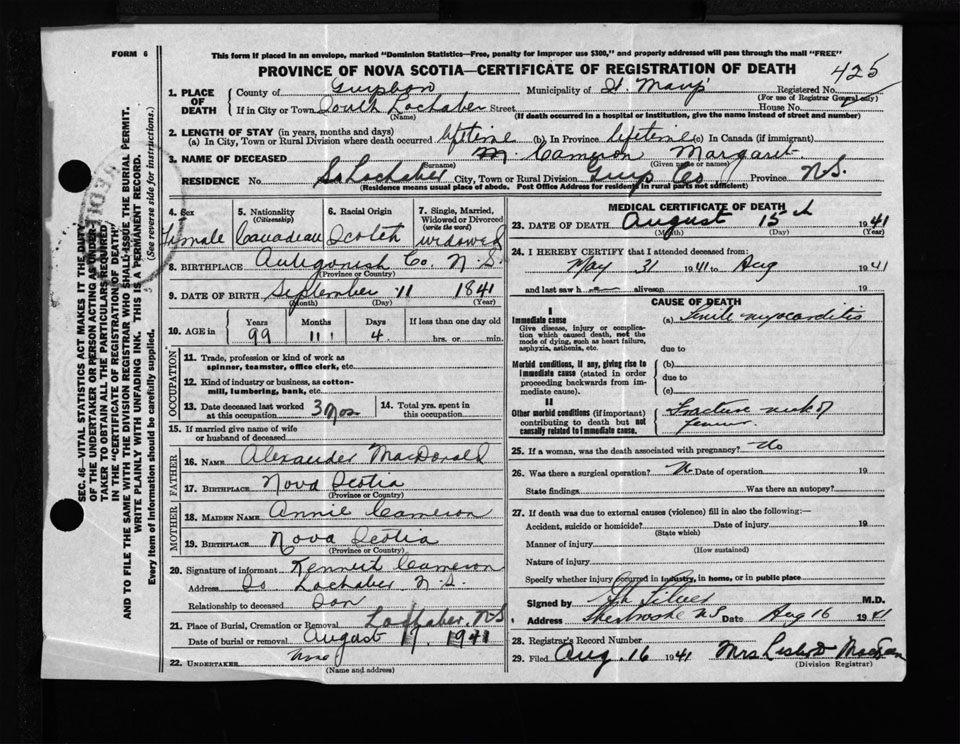 FORM 6
This form if placed in an envelope, marked "Dominion Statistics—Free, penalty for improper use $300," and properly addressed will pass through the mail "FREE"
PROVINCE OF NOVA SCOTIA—CERTIFICATE OF REGISTRATION OF DEATH
425
1. PLACE OF DEATH
County of Guysboro Municipality of St. Marys Registered No.
(For use of Registrar General only)
If in City or Town South Lochaber Street House No.
(Name) (If death occurred in a hospital or institution, give the name instead of street and number)
2. LENGTH OF STAY (in years, months and days)
(a) In City, Town or Rural Division where death occurred lifetime (b) In Province lifetime (c) In Canada (if immigrant)
3. NAME OF DECEASED Cameron Margaret
(Surname) (Given name or names)
RESIDENCE No. So Lochaber City, Town or Rural Division Guys Co. Province N.S.
(Residence means usual place of abode. Post Office Address for residents in rural parts not sufficient)
4. Sex
Female
5. Nationality
(Citizenship)
Canadian
6. Racial Origin
Scotch
7. Single, Married, Widowed or Divorced
(write the word)
widowed
8. BIRTHPLACE Antigonish Co. N.S.
(Province or Country)
9. DATE OF BIRTH September 11 1841
(Month) (Day) (Year)
10. AGE in Years Months Days If less than one day old
99 11 4 hrs. or min.
OCCUPATION
11. Trade, profession or kind of work as spinner, teamster, office clerk, etc.
12. Kind of industry or business, as cotton-mill, lumbering, bank, etc.
13. Date deceased last worked at this occupation 3 Mos
14. Total yrs. spent in this occupation
15. If married give name of wife or husband of deceased
FATHER
16. NAME Alexander MacDonald
17. BIRTHPLACE Nova Scotia
(Province or Country)
MOTHER
18. MAIDEN NAME Annie Cameron
19. BIRTHPLACE Nova Scotia
(Province or Country)
20. Signature of informant Kenneth Cameron
Address So Lochaber N.S.
Relationship to deceased Son
21. Place of Burial, Cremation or Removal Lochaber, N.S
Date of burial or removal August 17 1941
22. UNDERTAKER None
(Name and address)
MEDICAL CERTIFICATE OF DEATH
23. DATE OF DEATH August 15th 1941
(Month) (Day) (Year)
24. I HEREBY CERTIFY that I attended deceased from:
May 31 1941 to Aug 1941
and last saw h alive on 19
CAUSE OF DEATH
I
Immediate cause
Give disease, injury or complication which caused death, not the mode of dying, such as heart failure, asphyxia, asthenia, etc.
(a) Senile myocarditis
due to
Morbid conditions, if any, giving rise to immediate cause (stated in order proceeding backwards from immediate cause).
(b)
due to
(c)
II
Other morbid conditions (if important) contributing to death but not causally related to immediate cause.
Fracture neck of
femur
25. If a woman, was the death associated with pregnancy? No
26. Was there a surgical operation? N Date of operation 19
State findings Was there an autopsy?
27. If death was due to external causes (violence) fill in also the following:—
Accident, suicide or homicide? Date of injury 19
(State which)
Manner of injury
(How sustained)
Nature of injury
Specify whether injury occurred in industry, in home, or in public place
Signed by M.D.
Address Sherbrooke N.S Date Aug 16 1941
28. Registrar's Record Number
29. Filed Aug. 16 1941 Mrs
(Division Registrar)
SEC. 46—VITAL STATISTICS ACT MAKES IT THE DUTY
OF THE UNDERTAKER OR PERSON ACTING AS UNDER-
TAKER TO OBTAIN ALL THE PARTICULARS REQUIRED
IN THE "CERTIFICATE OF REGISTRATION OF DEATH"
AND TO FILE THE SAME WITH THE DIVISION REGISTRAR WHO SHALL ISSUE THE BURIAL PERMIT.
WRITE PLAINLY WITH UNFADING INK. THIS IS A PERMANENT RECORD.
Every item of information should be carefully supplied. (See reverse side for instructions.)